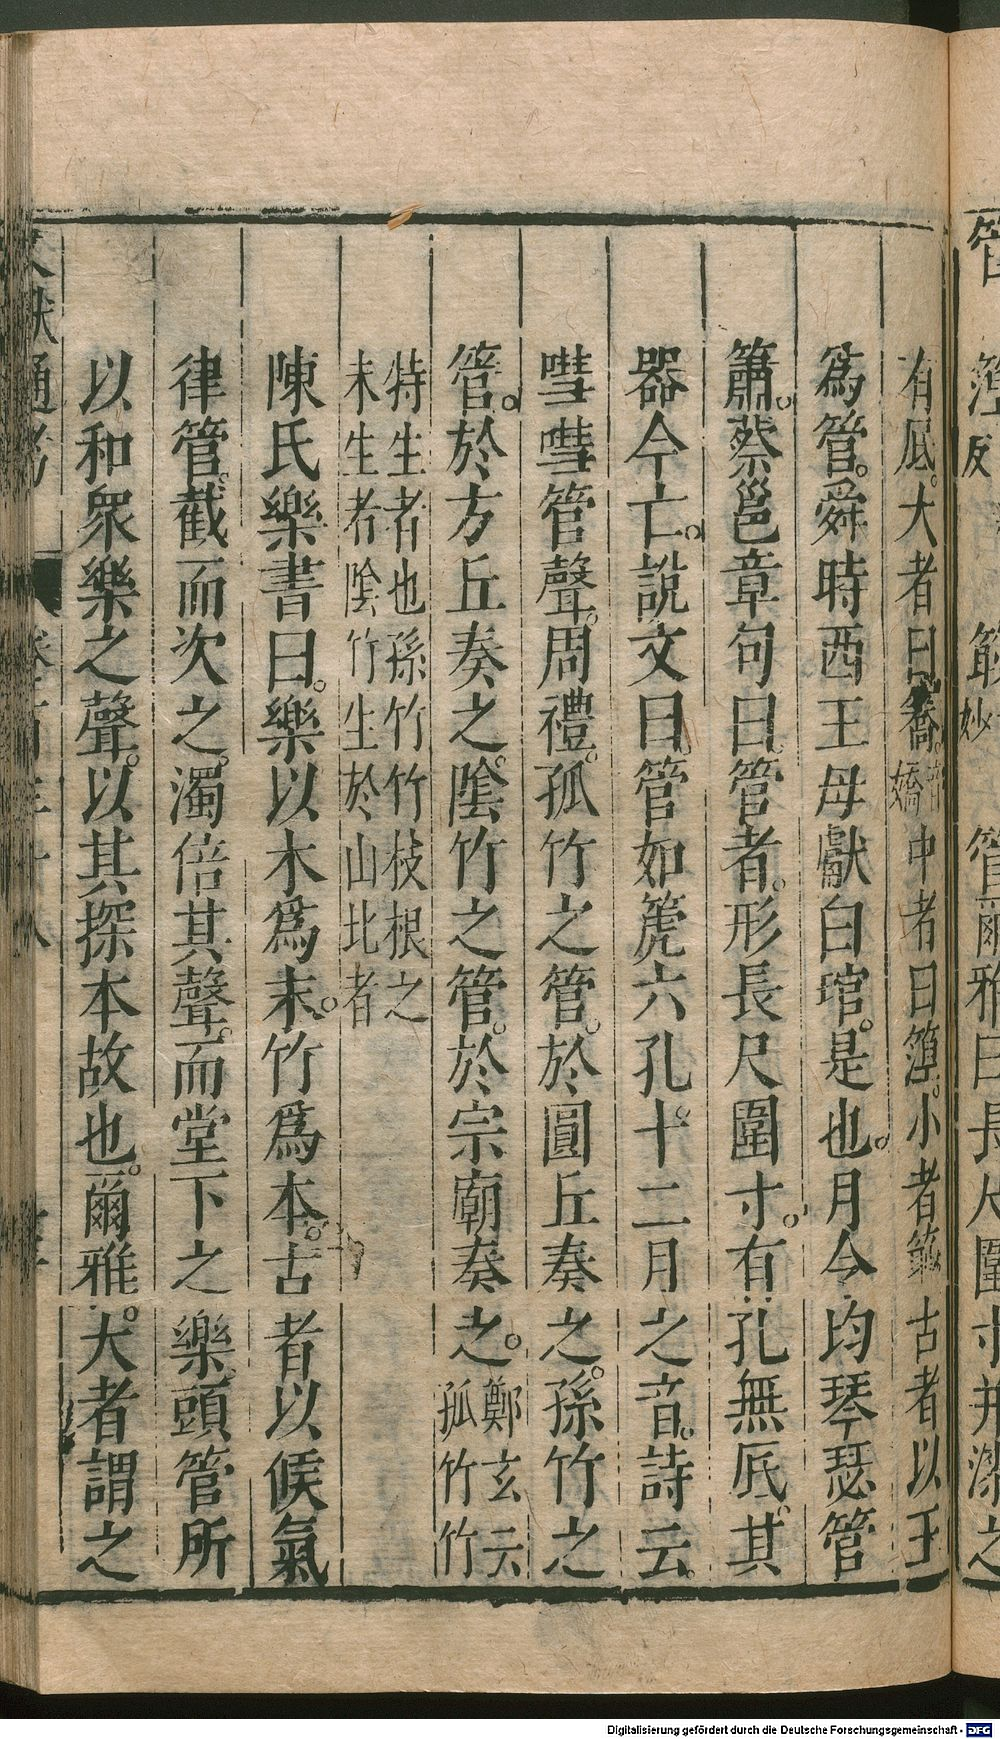 管 簻 反 篎 妙 管爾雅曰長尺圍寸并漆之
有底。大者曰簥。音嬌 中者曰篞。小者篎 古者以玉
爲管。舜時西王母獻白琯。是也。月令均琴瑟管
簫。蔡邕章句曰。管者。形長尺圍寸。有孔無底。其
器今亡。說文曰。管如箎六孔。十二月之音。詩云。
嘒嘒管聲。周禮。孤竹之管。於圓丘奏之。孫竹之
管。於方丘奏之。陰竹之管。於宗廟奏之。鄭玄云孤竹竹
特生者也孫竹竹枝根之
未生者陰竹生於山北者
陳氏樂書曰。樂以木爲末。竹爲本。古者以候氣
律管。截而次之。濁倍其聲。而堂下之樂。頭管所
以和衆樂之聲。以其探本故也。爾雅。大者謂之
文獻通考 卷一百三十八
Digitalisierung gefördert durch die Deutsche Forschungsgemeinschaft - DFG